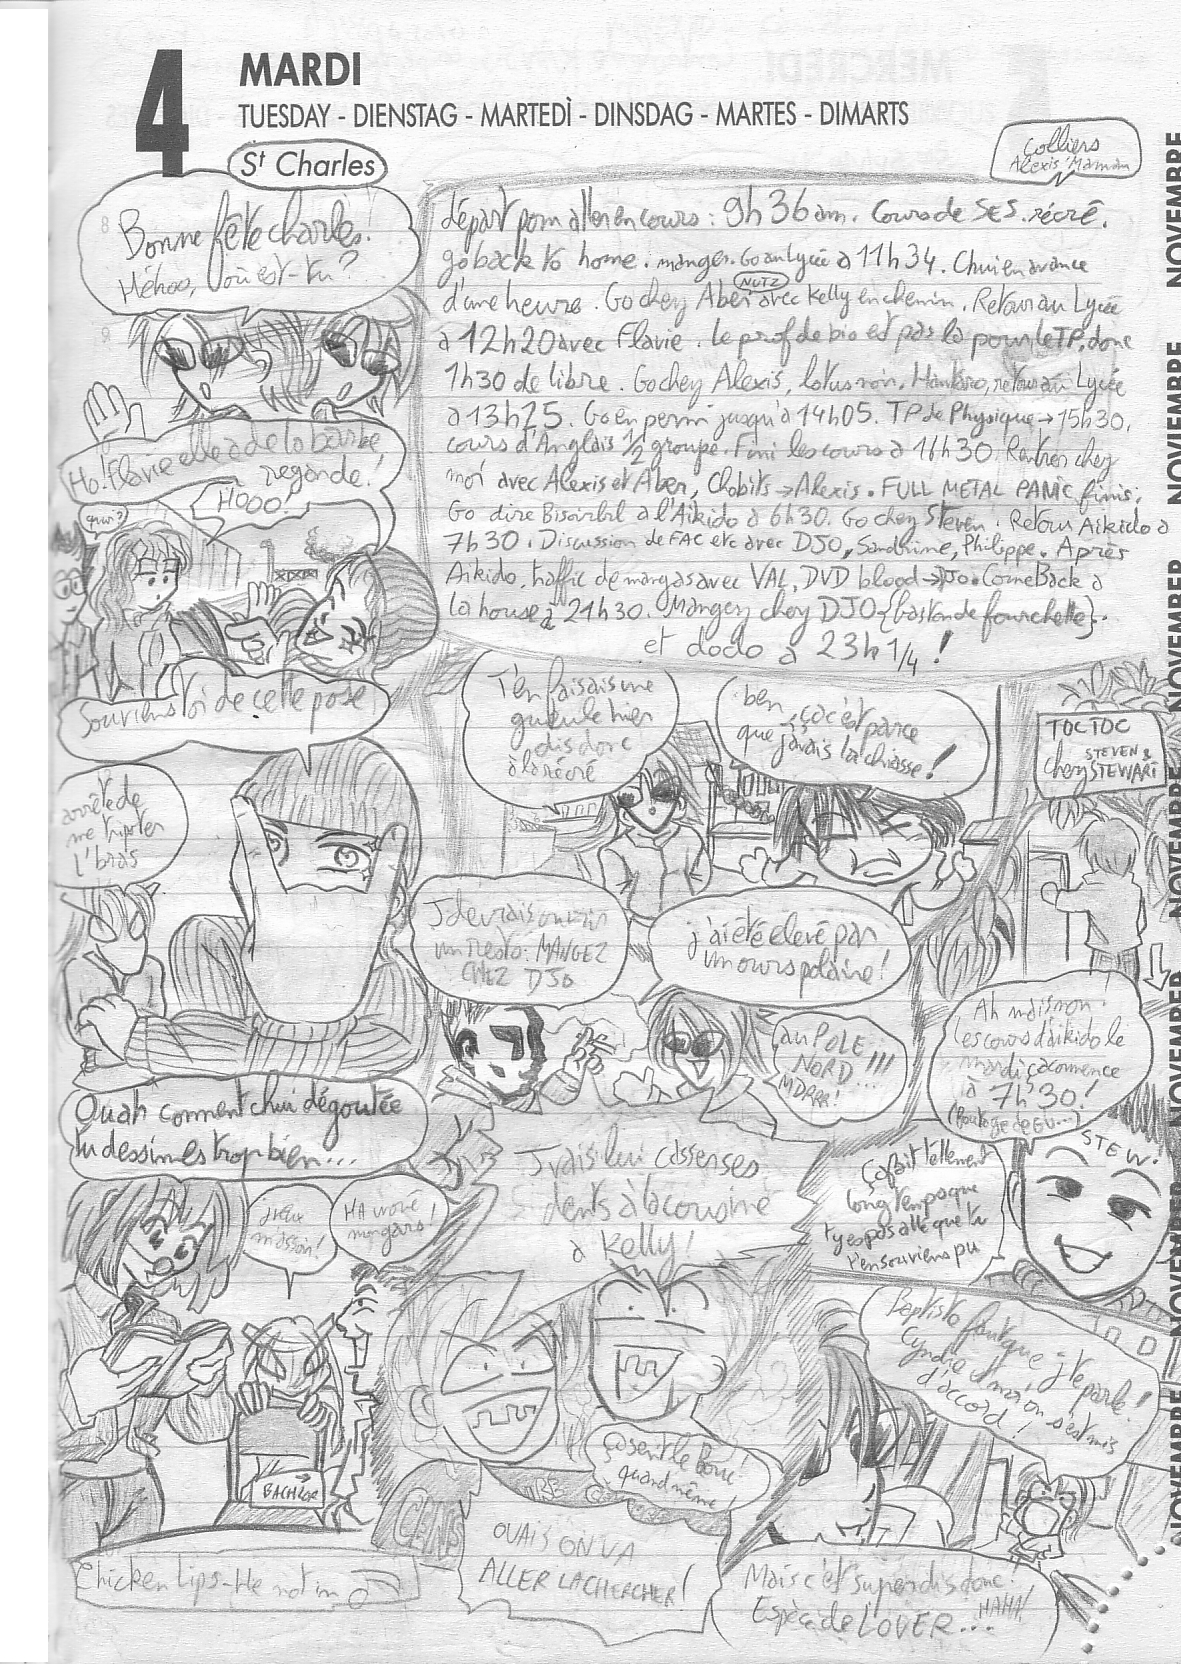 4
MARDI
TUESDAY - DIENSTAG - MARTEDÌ - DINSDAG - MARTES - DIMARTS
St Charles
Colliers
Alexis Maman
Bonne fête charles!
Héhoo, où est-tu?
départ pour aller en cours : 9h36 am. Cours de SES. récré.
go back to home. manger. Go au lycée à 11h34. Chui en avance
d'une heure. Go chez Aber avec Kelly en chemin. Retour au Lycée
NUTZ
à 12h20 avec Flavie. Le prof de bio est pas là pour le TP, donc
1h30 de libre. Go chez Alexis, lotus noir, Hamtaro, retour au Lycée
à 13h25. Go en perm jusqu'à 14h05. TP de Physique → 15h30,
cours d'Anglais 1/2 groupe. Fini les cours à 16h30. Rentrer chez
moi avec Alexis et Aber, Chobits → Alexis. FULL METAL PANIC finis.
Go dire à l'Aikido à 6h30. Go chez Steven. Retour Aikido à
7h30. Discussion de FAC etc avec DJO, Sandrine, Philippe. Après
Aikido, traffic de mangas avec VAL, DVD blood → DJO. Come Back à
la house à 21h30. Manger chez DJO {baston de fourchette}.
et dodo à 23h 1/4 !
Ho! Flavie elle a de la barbe,
regarde!
HOOO!
quoi?
Souviens toi de cette pose
arrête de
me tripoter
l'bras
T'en faisais une
gueule hier
dis donc
à la récré
ben, ça c'est parce
que j'avais la chiasse!
TOC TOC
chez STEVEN &
STEWART
J'devrais ouvrir
un resto: MANGEZ
CHEZ DJO
j'ai été élevé par
un ours polaire!
au POLE
NORD !!!
MDRRR!
Ah mais non
les cours d'aikido le
mardi ça commence
à 7h30!
STEW.
ça fait tellement
longtemps que
t'y es pas allé que tu
t'en souviens pu
Ouah comment chui dégoutée
tu dessines trop bien...
HA ouai
mangaro!
J'vais lui casser ses
dents à la cousine
à Kelly!
BACHLOR
Chicken Lips - He not in
ça sent le Bouc
quand même!
OUAIS ON VA
ALLER LA CHERCHER!
Baptisto faut que j'te parle!
Cyndie et moi on s'est mis
d'accord!
Mais c'est super dis donc!
Espèce de LOVER...
HAHA!
NOVEMBRE
NOVEMBRE
NOVEMBRE
NOVEMBRE
NOVEMBRE
NOVEMBRE
NOVEMBRE